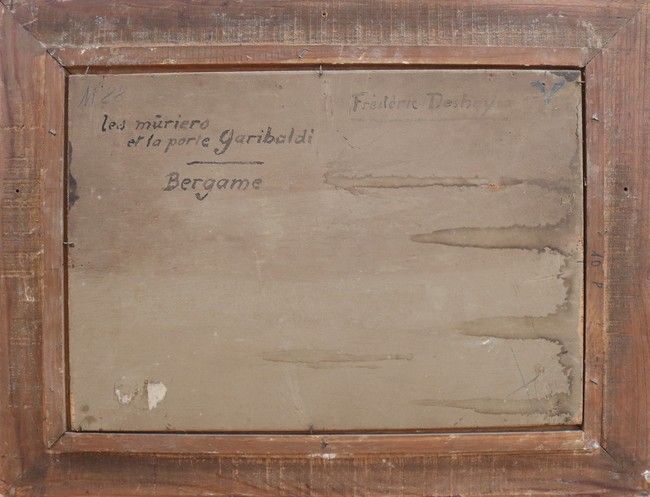 N° 88
Frédéric Deshayes
les mûriers
et la porte Garibaldi
Bergame
10 P